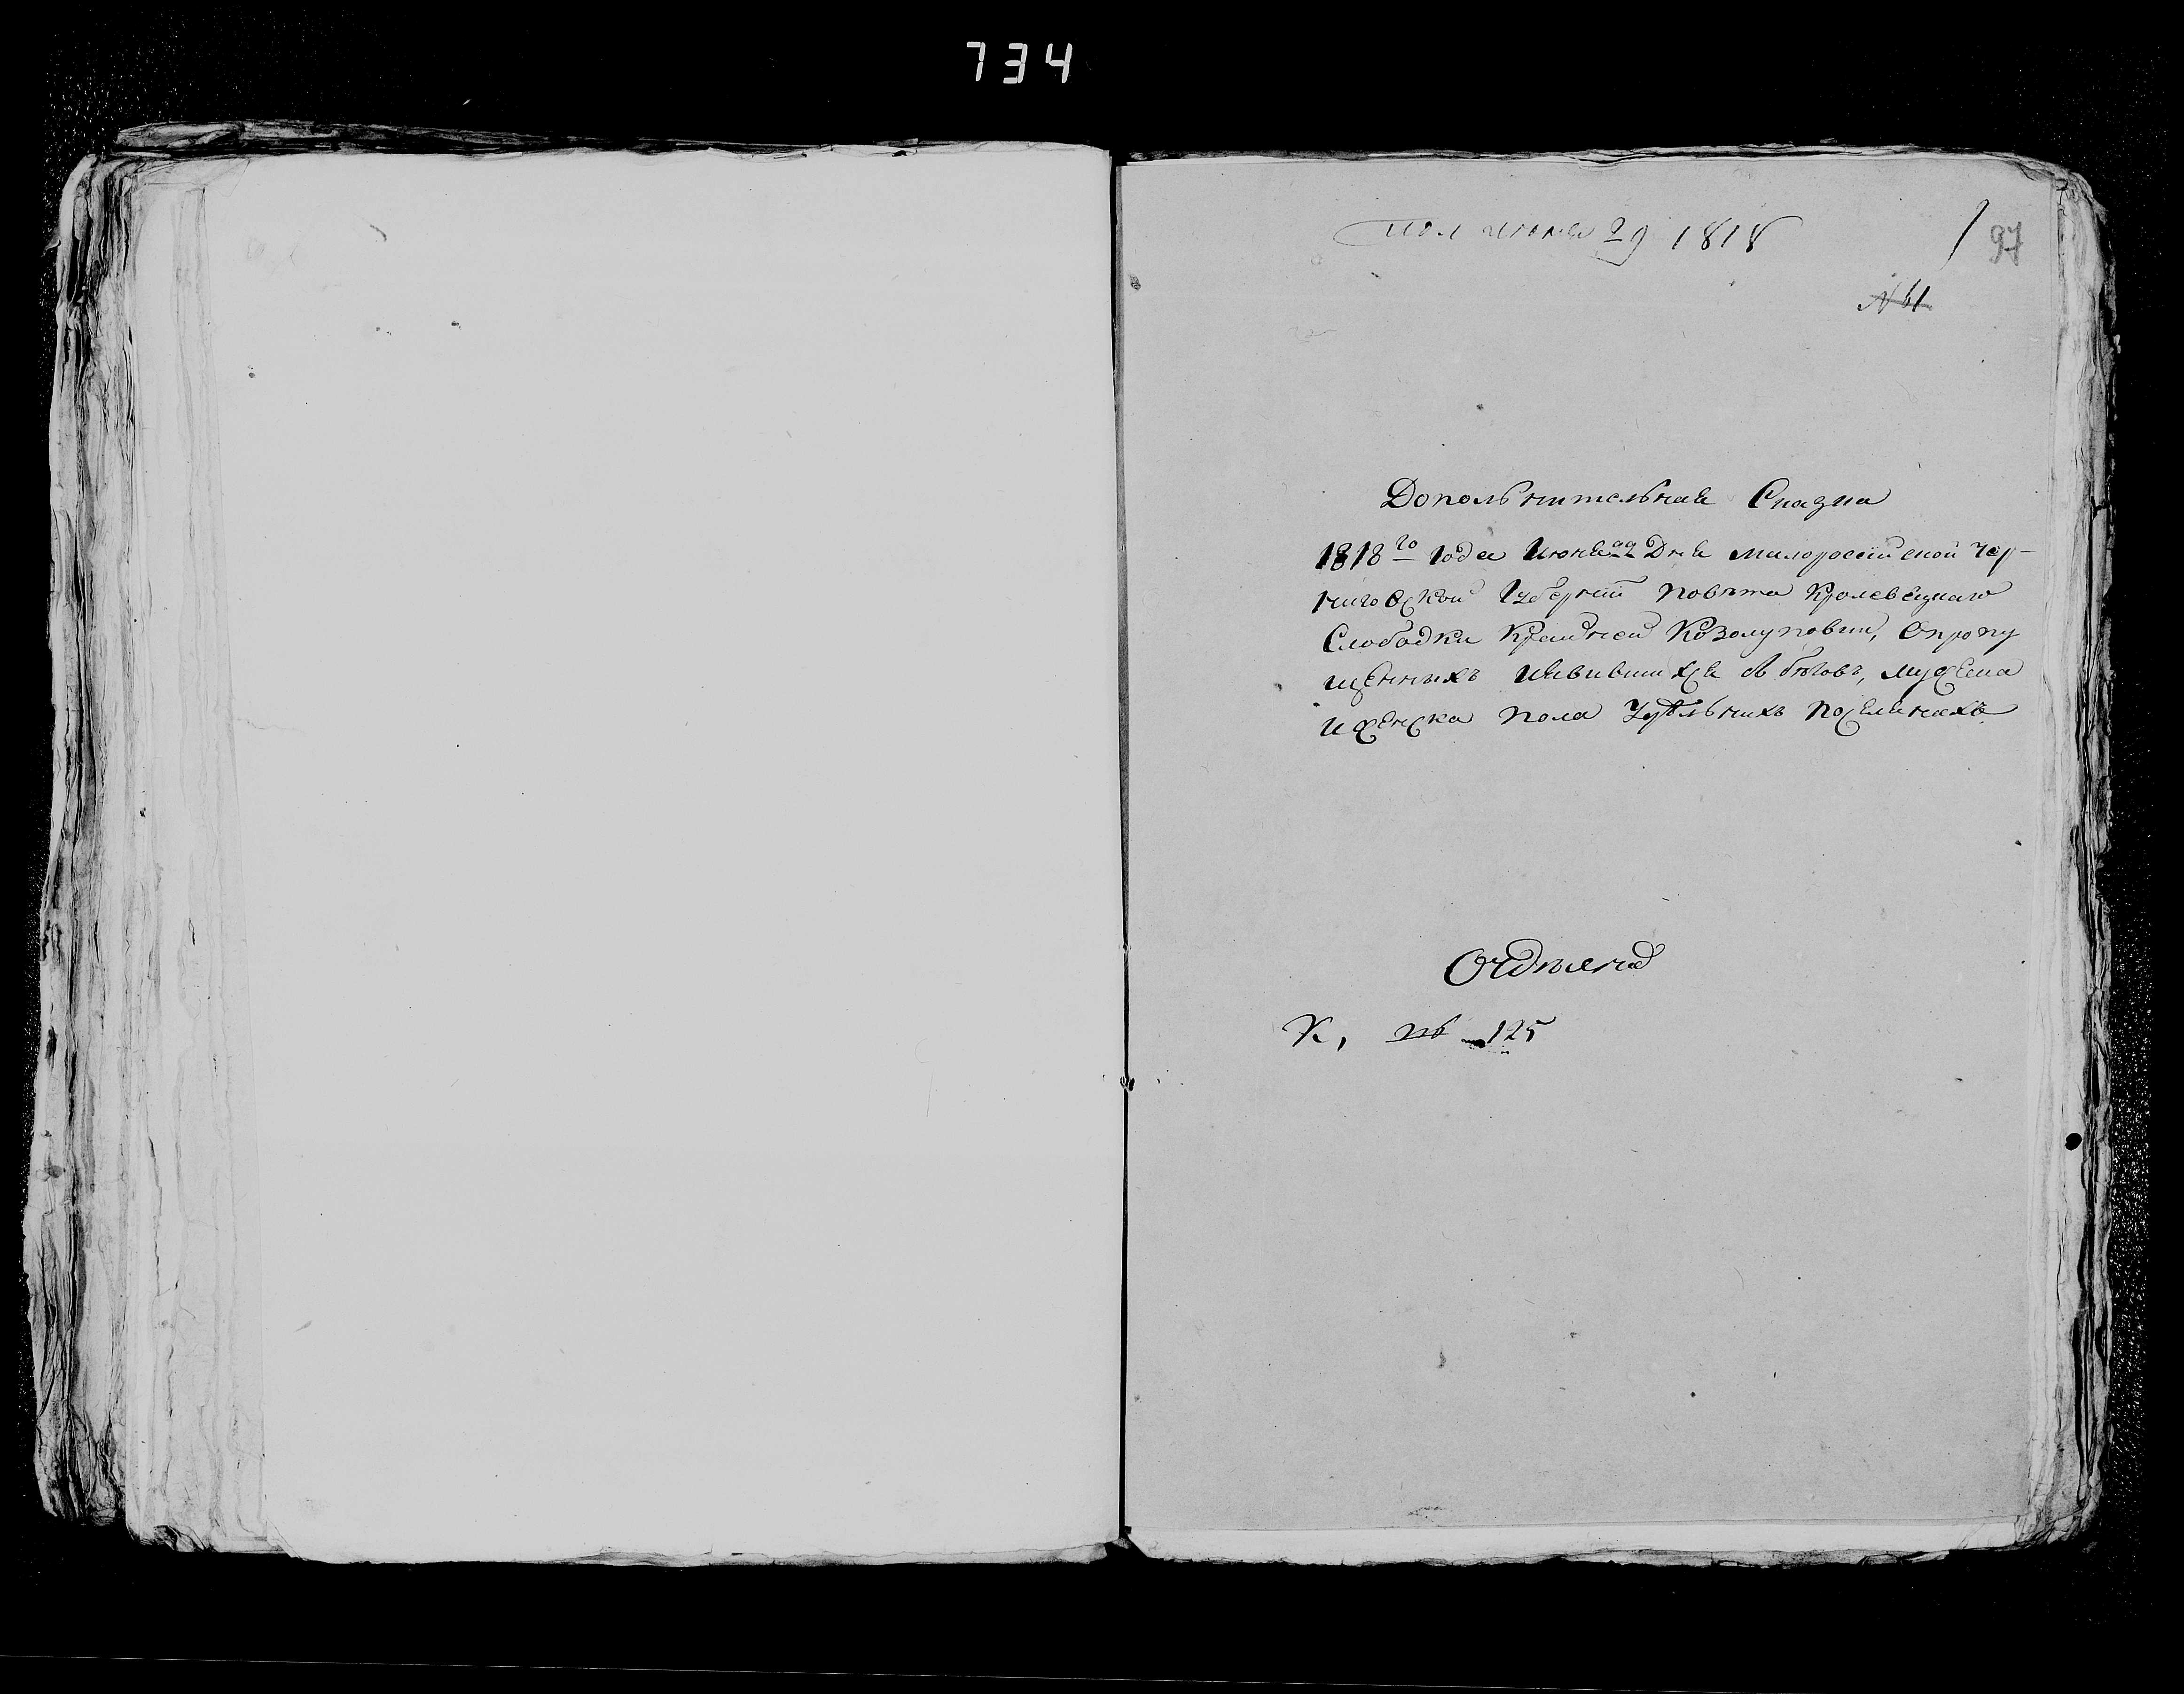 734
пол июня 29 1818
97
№ 61
Дополнительная Сказка
1818го Года Июня Дня Малороссийской Чер-
ниговской Губернии повета Кролевецкаго
Слободки Крайней Козолуповки, Опропу
щенныхъ Иявившихся бѣговъ, мужеска
Иженска пола Удѣльныхъ поселянахъ
К, 125